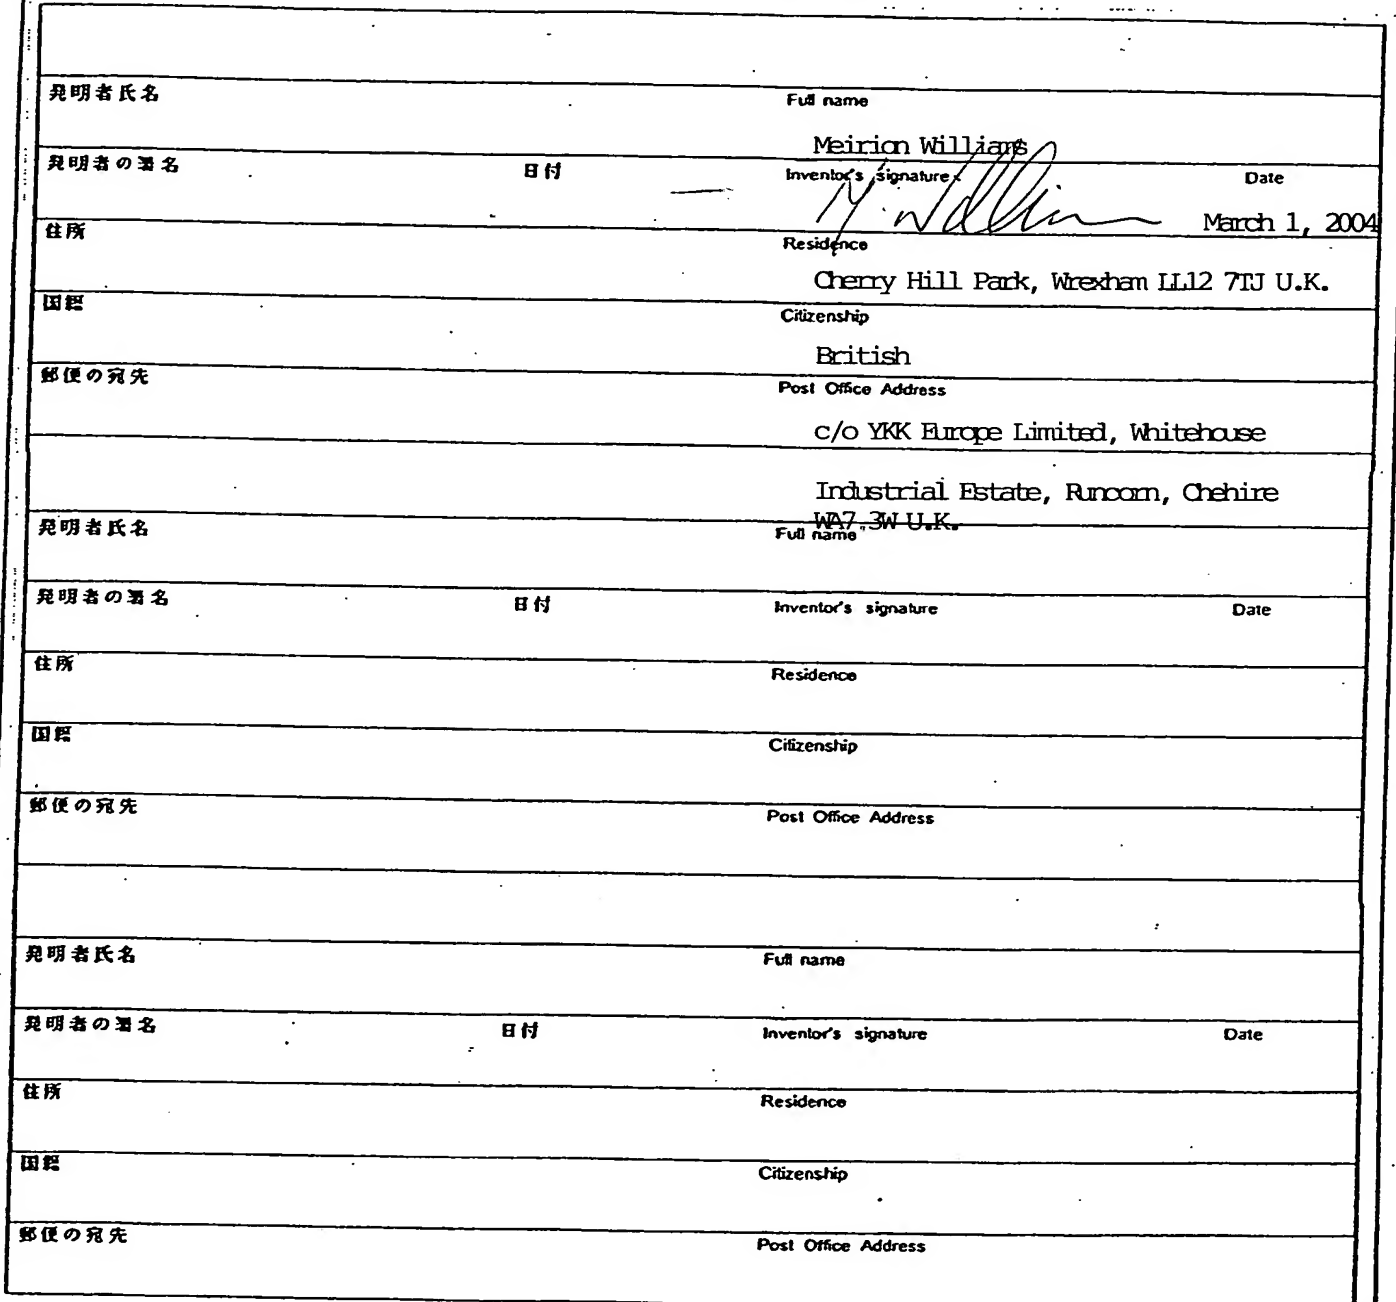 発明者氏名 Full name
Meirion Williams
発明者の署名 日付 Inventor's signature Date
M. Williams March 1, 2004
住所 Residence
Cherry Hill Park, Wrexham LL12 7TJ U.K.
国籍 Citizenship
British
郵便の宛先 Post Office Address
c/o YKK Europe Limited, Whitehouse
Industrial Estate, Runcorn, Chehire
WA7 3W U.K.
発明者氏名 Full name
発明者の署名 日付 Inventor's signature Date
住所 Residence
国籍 Citizenship
郵便の宛先 Post Office Address
発明者氏名 Full name
発明者の署名 日付 Inventor's signature Date
住所 Residence
国籍 Citizenship
郵便の宛先 Post Office Address